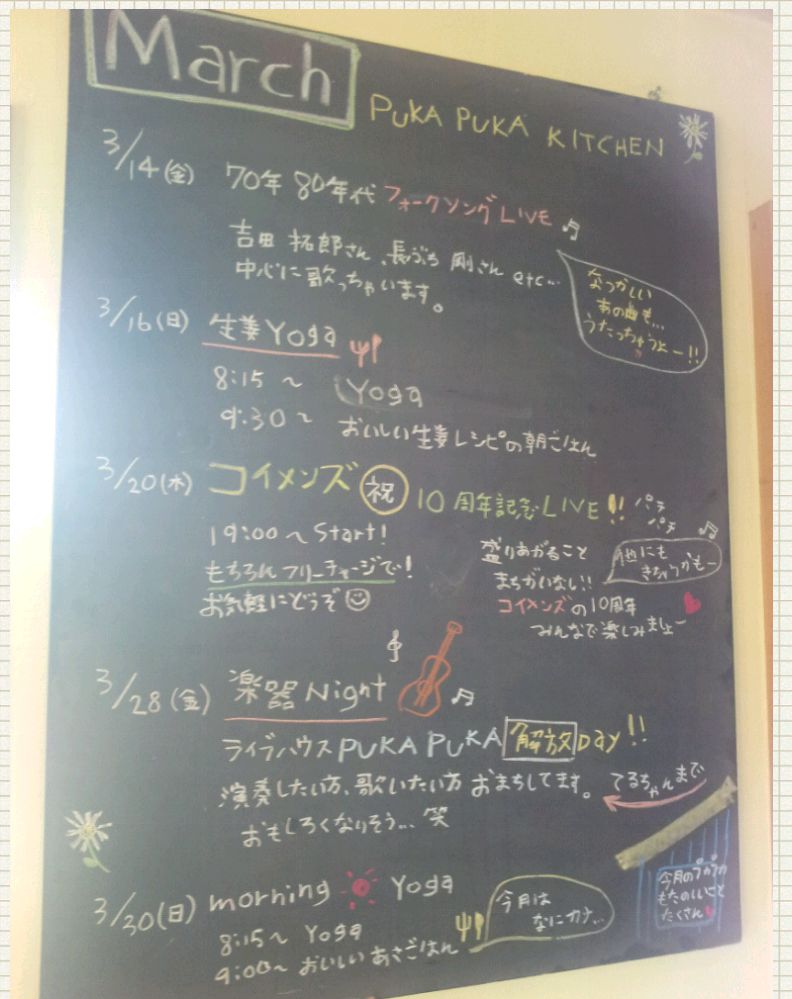 March
PUKA PUKA KITCHEN
3/14(金) 70年 80年代 フォークソング LIVE
吉田 拓郎さん、長ぶち 剛さん etc...
中心に歌っちゃいます。
なつかしい
あの曲も...
うたっちゃうよー!!
3/16(日) 生姜 Yoga
8:15 〜 Yoga
9:30 〜 おいしい生姜レシピの朝ごはん
3/20(木) コイメンズ 祝 10周年記念LIVE!!
パチ
パチ
19:00 〜 Start!
もちろん フリーチャージで!
お気軽にどうぞ
盛りあがること
まちがいない!!
他にも
きちゃうかもー
コイメンズの10周年
みんなで楽しみましょー
3/28(金) 楽器 Night
ライブハウス PUKA PUKA 解放 Day!!
演奏したい方、歌いたい方 おまちしてます。
てるちゃんまで
おもしろくなりそう... 笑
今月のプカプカ
もたのしいこと
たくさん
3/30(日) morning Yoga
今月は
なにカナ...
8:15〜 Yoga
9:00〜 おいしい あさごはん